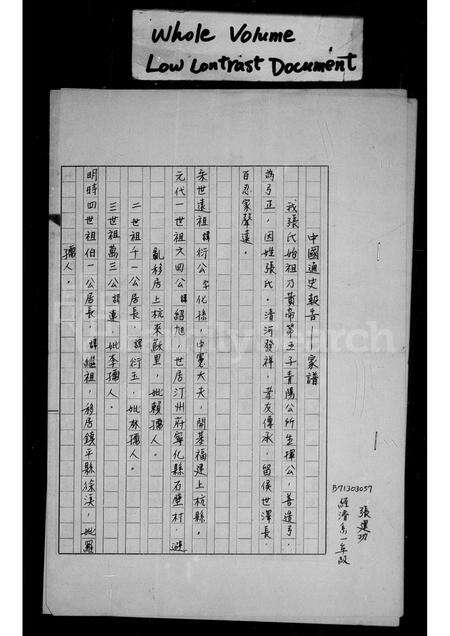 Whole Volume
Low Contrast Document
B71303057
張建功
經濟系一年級
中國通史報告 家譜
我張氏始祖乃黃帝第五子青陽公所生揮公，善造弓，
為弓正，因姓張氏。清河發祥，孝友傳承，留侯世澤長，
百忍家聲遠。
宋世遠祖諱衍公字化孫，中憲大夫，開基福建上杭縣，
元代一世祖六四公諱紹旭，世居汀州府寧化縣石壁村，避
亂移居上杭來蘇里，妣賴孺人。
二世祖千一公居長，諱衍玉，妣林孺人。
三世祖萬三公諱連，妣李孺人。
明時四世祖伯一公居長，諱繼祖，移居鎮平縣徐溪，妣羅
孺人。